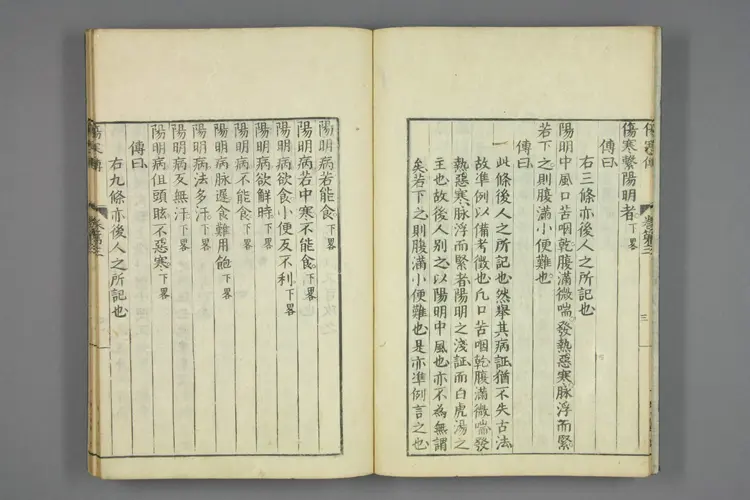 傷寒繫陽明者下畧
傳曰
右三條亦後人之所記也
陽明中風口苦咽乾腹滿微喘發熱惡寒脉浮而緊
若下之則腹滿小便難也
傳曰
此條後人之所記也然舉其病証猶不失古法
故準例以備考徴也凢口苦咽乾腹滿微喘發
熱惡寒脉浮而緊者陽明之淺証而白虎湯之
主也故後人別之以陽明中風也亦不為無謂
矣若下之則腹滿小便難也是亦準例言之也
三
陽明病若能食下畧
陽明病若中寒不能食下畧
陽明病欲食小便反不利下畧
陽明病欲解時下畧
陽明病不能食下畧
陽明病脉遲食難用飽下畧
陽明病法多汗下畧
陽明病反無汗下畧
陽明病但頭眩不惡寒下畧
傳曰
右九條亦後人之所記也